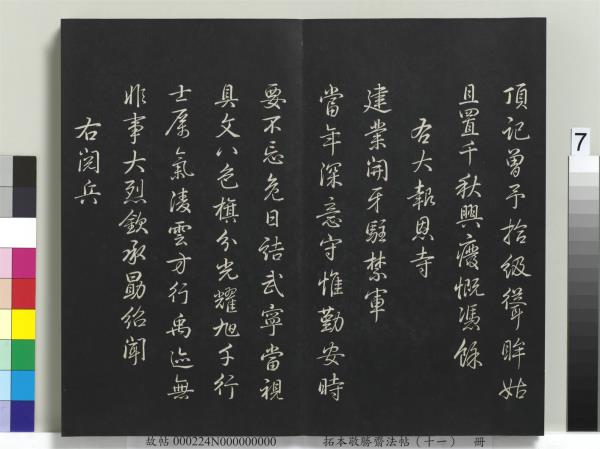 頂記曾予拾級聳眸姑
且置千秋興廢慨憑餘
右大報恩寺
建業開牙駐禁軍
當年深意守惟勤安時
要不忘危日詰武寧當視
具文八色旗分光耀旭千行
士厲氣凌雲方行禹迹無
非事大烈欽承勗紹聞
右閱兵
7
故帖 000224N000000000 拓本敬勝齋法帖（十一） 冊